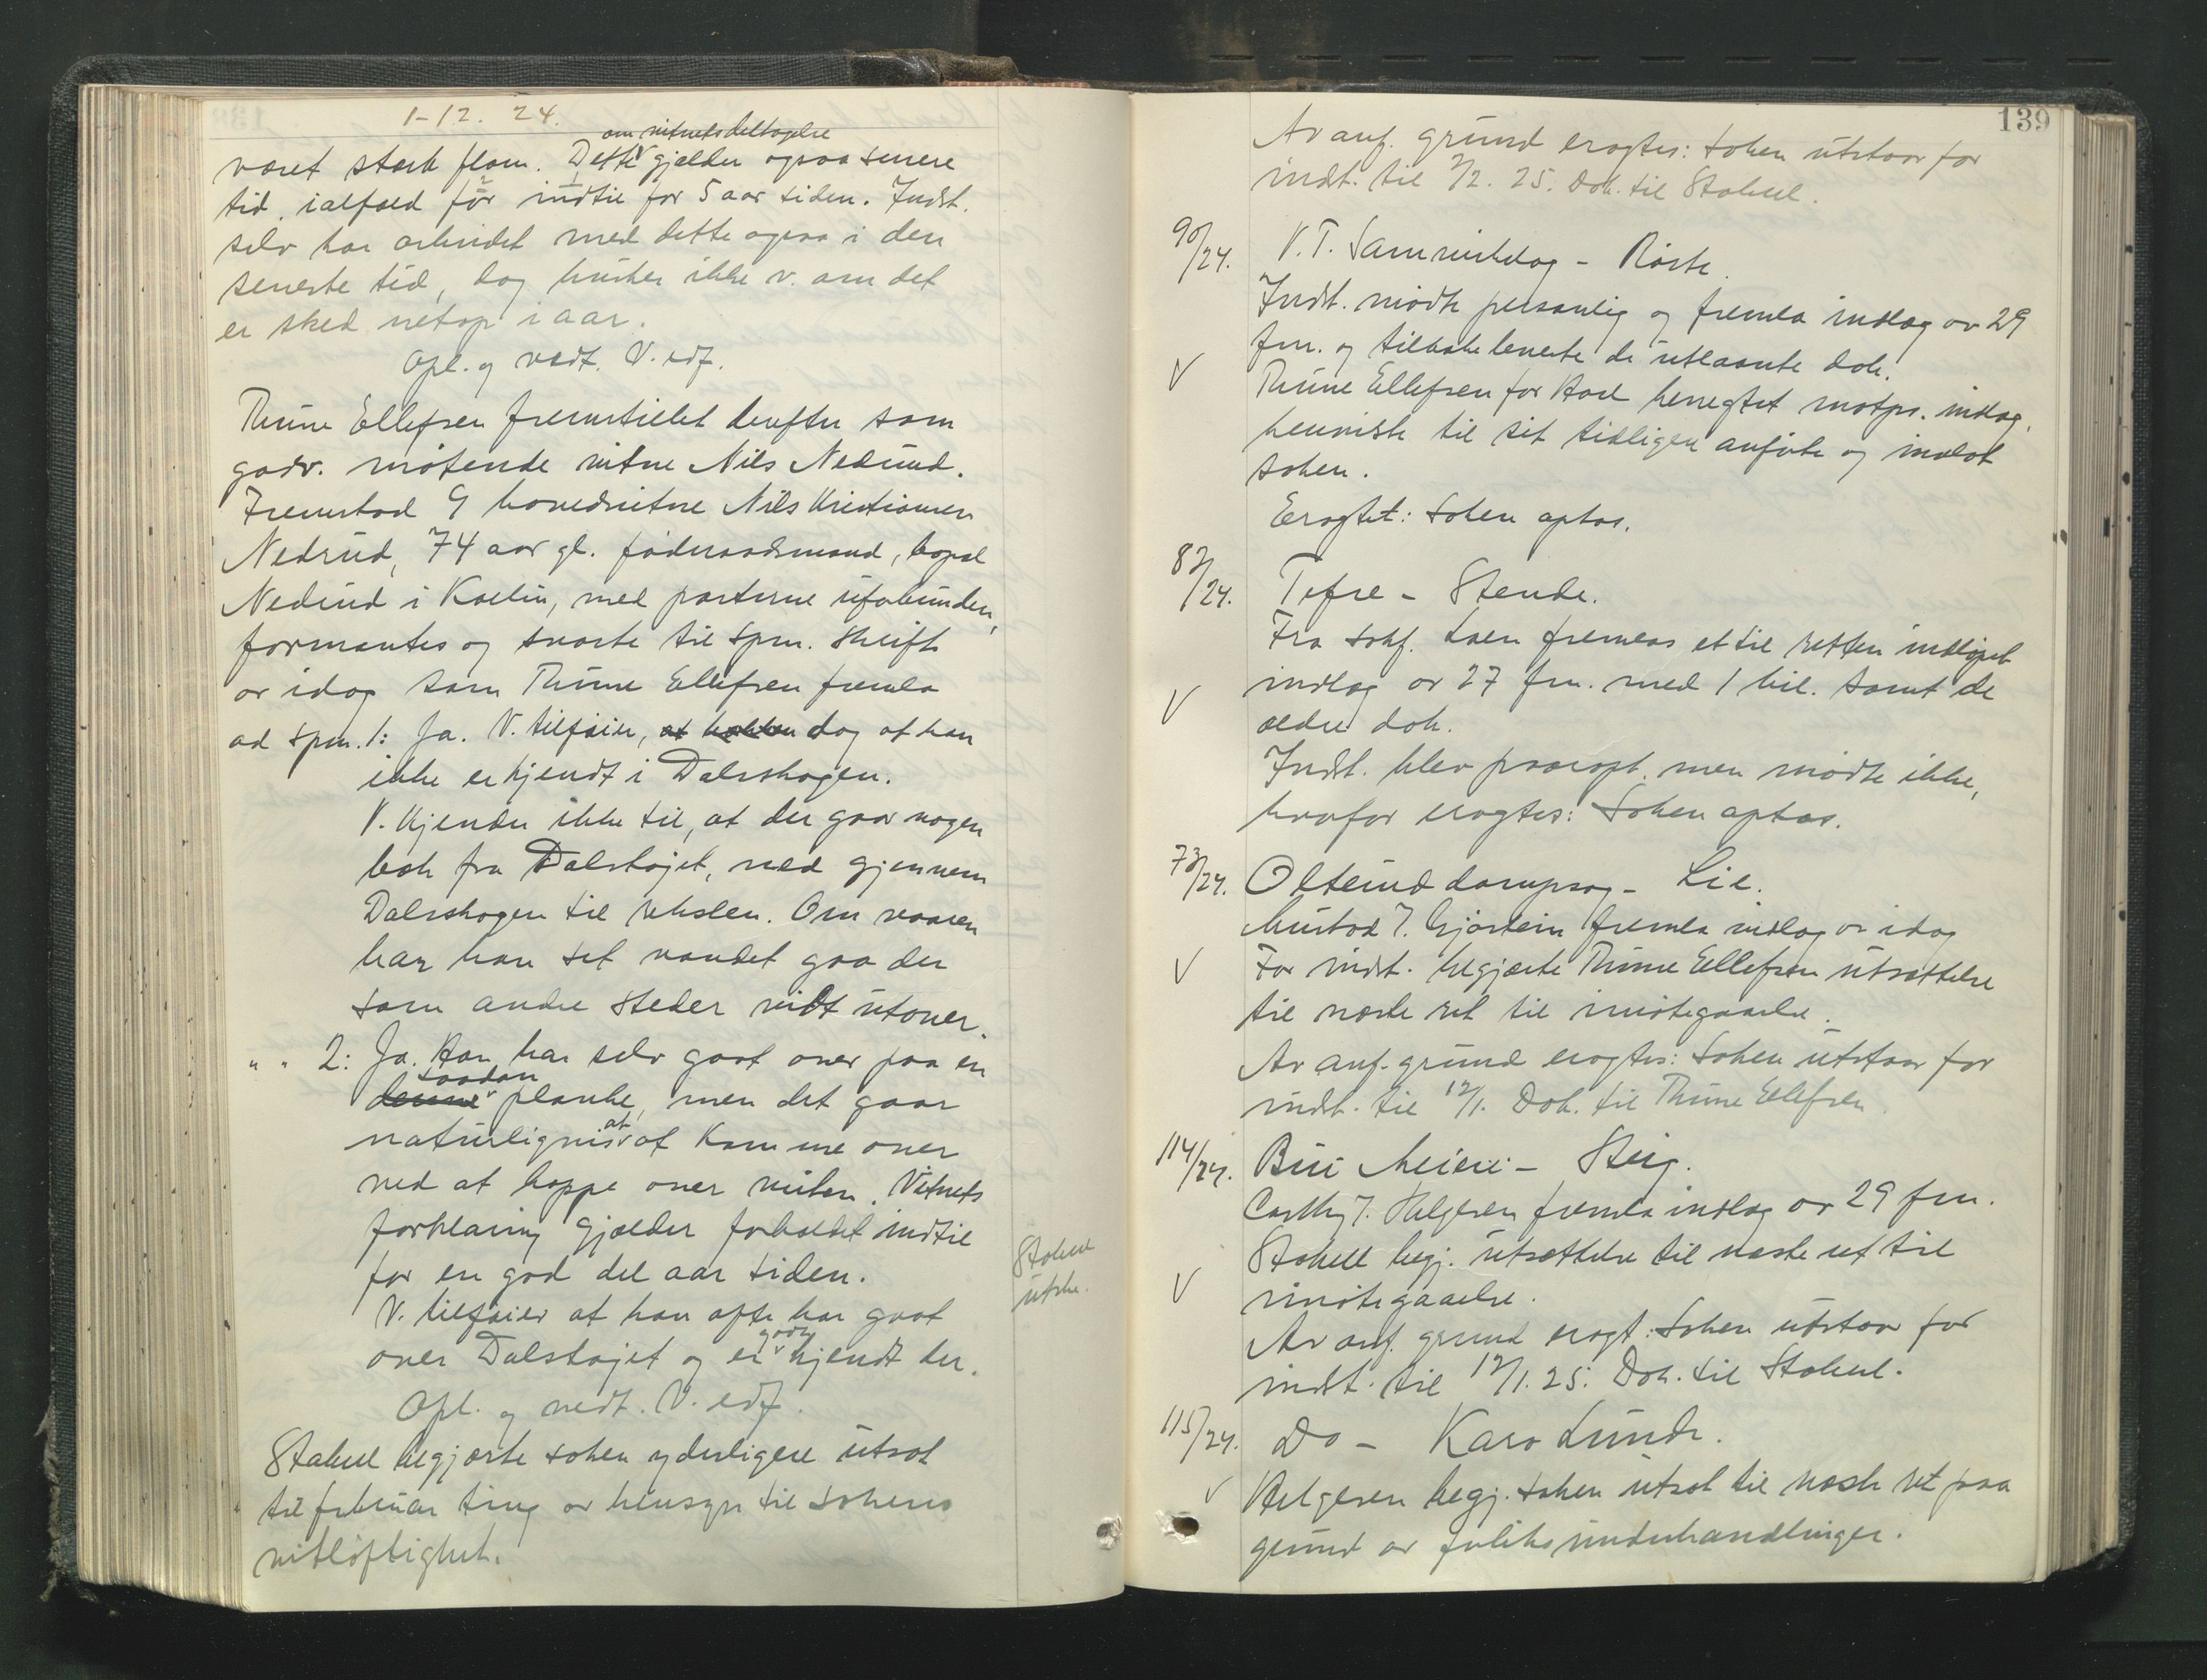 1-12. 24.
om vitnets deltagelse
været sterk flom. Dette gjælder ogsaa senere
tid, ialfald før indtil for 5 aar siden. Indst.
selv har arbeidet med dette ogsaa i den
seneste tid, dog husker ikke v. om det
er sked netop i aar.
Opl. og vedt. V. edf.
Thune Ellefsen fremstillet derefter som
godv. møtende vitne Nils Nedrud.
Fremstod 9 hovedvitne Nils Kristiansen
Nedrud, 74 aar gl. føderaadsmand, bopæl
Nedrud i Kolbu, med parterne uforbunden,
formantes og svarte til spm. skrift
av idag som Thune Ellefsen fremla
ad spm. 1: Ja. V. tilføier, at dog at han
ikke er kjendt i Dalsskogen.
V. kjender ikke til, at der gaar nogen
bæk fra Dalstøjet, ned gjennem
Dalsskogen til . Om vaaren
har han set vandet gaa der
som andre steder vidt utover.
" " 2: Ja. Han har selv gaat over paa en
saadan
denne planke, men det gaar
at
naturligvis at komme over
ved at hoppe over . Vitnets
forklaring gjælder forholdet indtil
for en god del aar siden.
V. tilføier at han ofte har gaat
godt
over Dalstøjet og er kjendt der.
Opl. og vedt. V. edf.
Stakell begjærte saken yderligere utsat
til februar ting av hensyn til sakens
vitløftighet.
Stakell
utskr.
139
Av anf. grund eragtes: Saken utstaar for
indst. til 2/2. 25. Dok. til Stakell.
90/24. V. T. Samvirkelag - Røste.
Indst. møtte personlig og fremla indlæg av 29
f.m. og tilbakeleverte de utlaante dok.
V
Thune Ellefsen for Aad benegtet motps. indlæg,
henviste til sit tidligere anførte og indlot
saken.
Eragtet: Saken optas.
82/24. Tofre - Stende.
Fra sakf. Loen fremlaas et til retten indløpet
indlæg av 27 f.m. med 1 bil. samt de
V
ældre dok.
Indst. blev paaropt, men møtte ikke,
hvorfor eragtes: Saken optas.
73/24. Olterud dampsag - Lie.
Mustad f. Gjørstein fremla indlæg av idag
V
For indst. begjærte Thune Ellefsen utsættelse
til næste ret til imøtegaaelse.
Av anf. grund eragtes: Saken utstaar for
indst. til 12/1. Dok. til Thune Ellefsen.
114/24. Biri Meieri - Steig.
f. Helgesen fremla indlæg av 29 f.m.
Stakell begj. utsættelse til næste ret til
V
imøtegaaelse.
Av anf. grund eragt: Saken utstaar for
indst. til 12/1. 25. Dok. til Stakell.
115/24. Do - Karo Lunde.
V
Helgesen begj. saken utsat til næste ret paa
grund av forliksunderhandlinger.